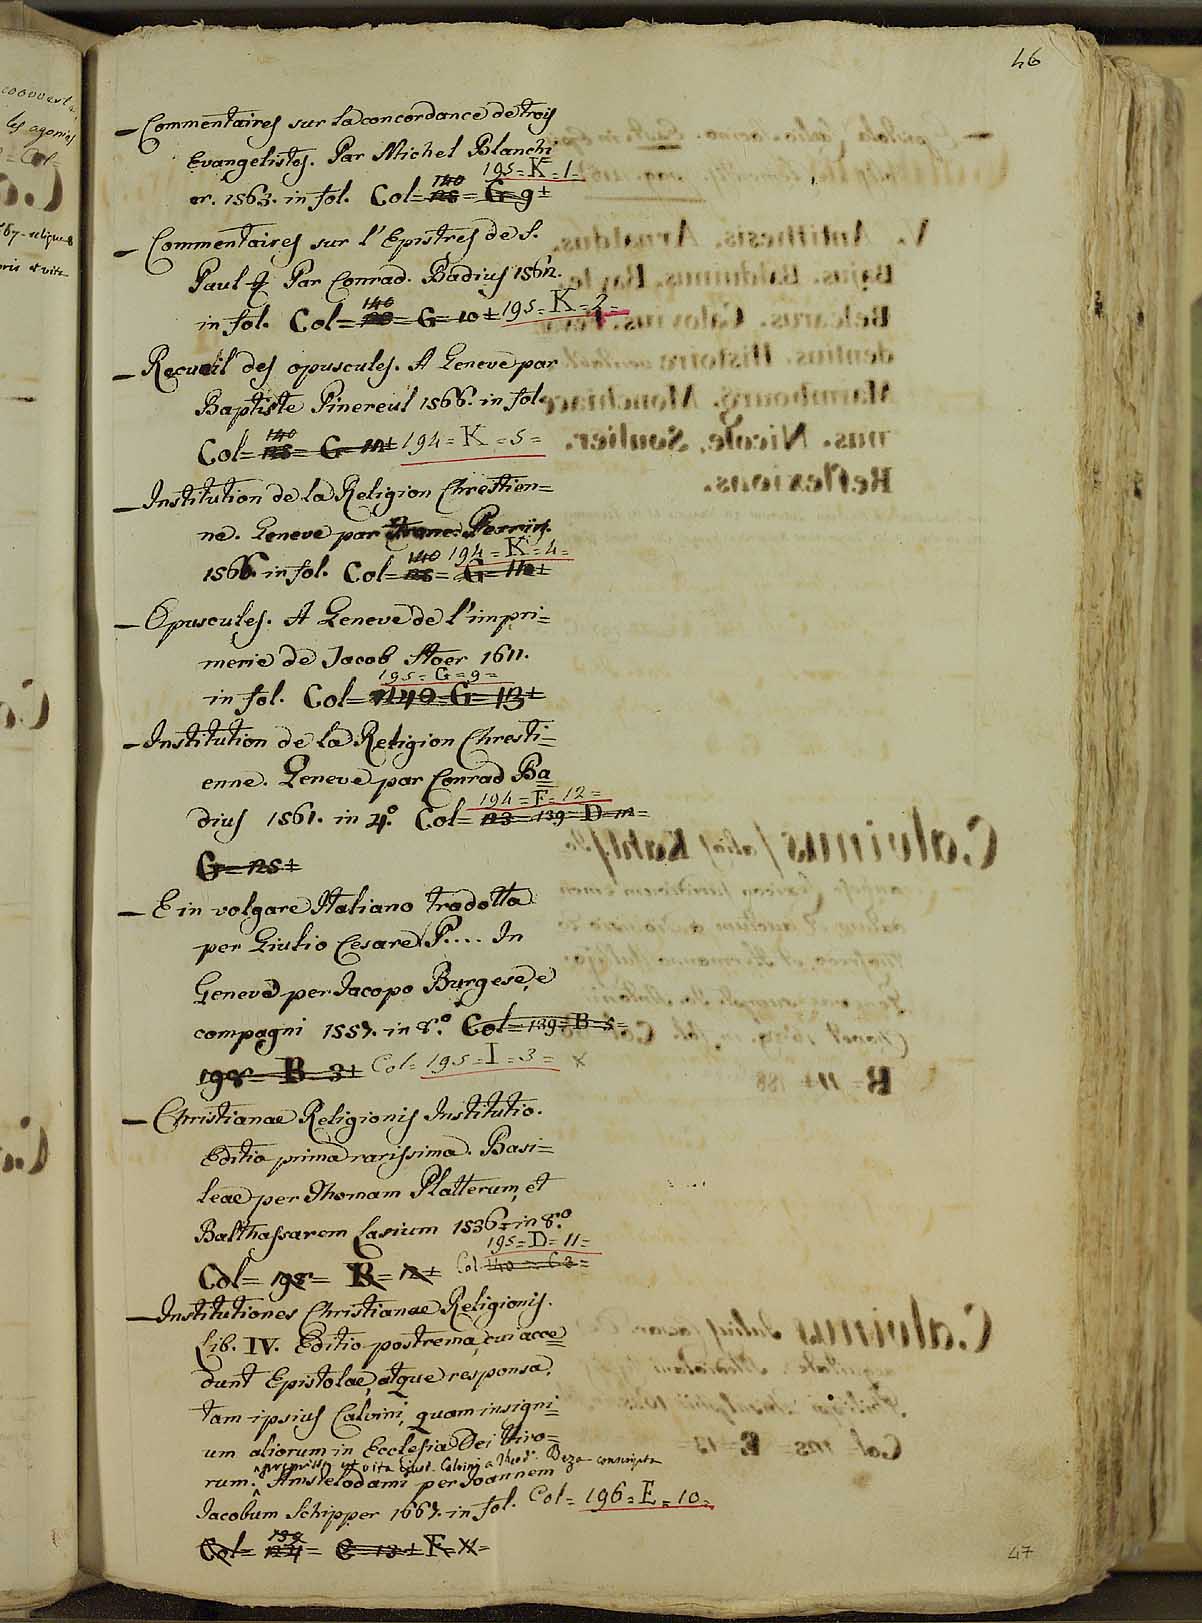 46
— Commentaires sur la concordance de trois
Evangelistes. Par Michel Blanchi
195 = K = 1 =
140
er. 1563. in fol. Col = 128 = G = 9 ±
— Commentaires sur l'Epistres de S.
Paul &. Par Conrad. Badius 1562.
140
in fol. Col = = G = 10 ± 195 = K = 2 =
— Recueil des opuscules. A Geneve par
Baptiste Pinereul 1566. in fol
140
Col = 128 = G = 12 ± 194 = K = 5 =
— Institution de la Religion Chrestien=
ne. Geneve par Franc. Perrin.
140 194 = K = 4 =
1566. in fol. Col = 128 = G = 11 ±
— Opuscules. A Geneve de l'impri=
merie de Jacob Stoer 1611.
195 = G = 9 =
in fol. Col = 140 = G = 13 ±
— Institution de la Religion Chresti=
enne. Geneve par Conrad Ba
194 = F = 12 =
dius 1561. in 4.º Col = 123 = 139 = D = 11 =
G = 125 ±
— E in volgare Italiano tradotta
per Giulio Cesare P.... In
Geneva per Jacopo Burgese, e
compagni 1557. in 8.º Col = 139 = B = 5 =
198 = B = 3 ± Col = 195 = I = 3 = ×
— Christianae Religionis Institutio.
Editio prima rarissima. Basi=
leae per Thomam Platterum, et
Balthassarem Lasium 1536. in 8.º
195 = D = 11 =
Col = 198 = B = 12 ± Col = 140 = C 3 =
— Institutiones Christianae Religionis.
Lib. IV. Editio postrema, cui acce
dunt Epistolae, atque responsa,
tam ipsius Calvini, quam insigni=
um aliorum in Ecclesia Dei Viro=
et vita ejusd. Calvini a Theod. Beza conscripta
rum. Amstelodami per Joannem
Jacobum Schipper 1667. in fol. Col = 196 = E = 10 =
139
Col = 124 = C = 13 ± F = 11 =
47